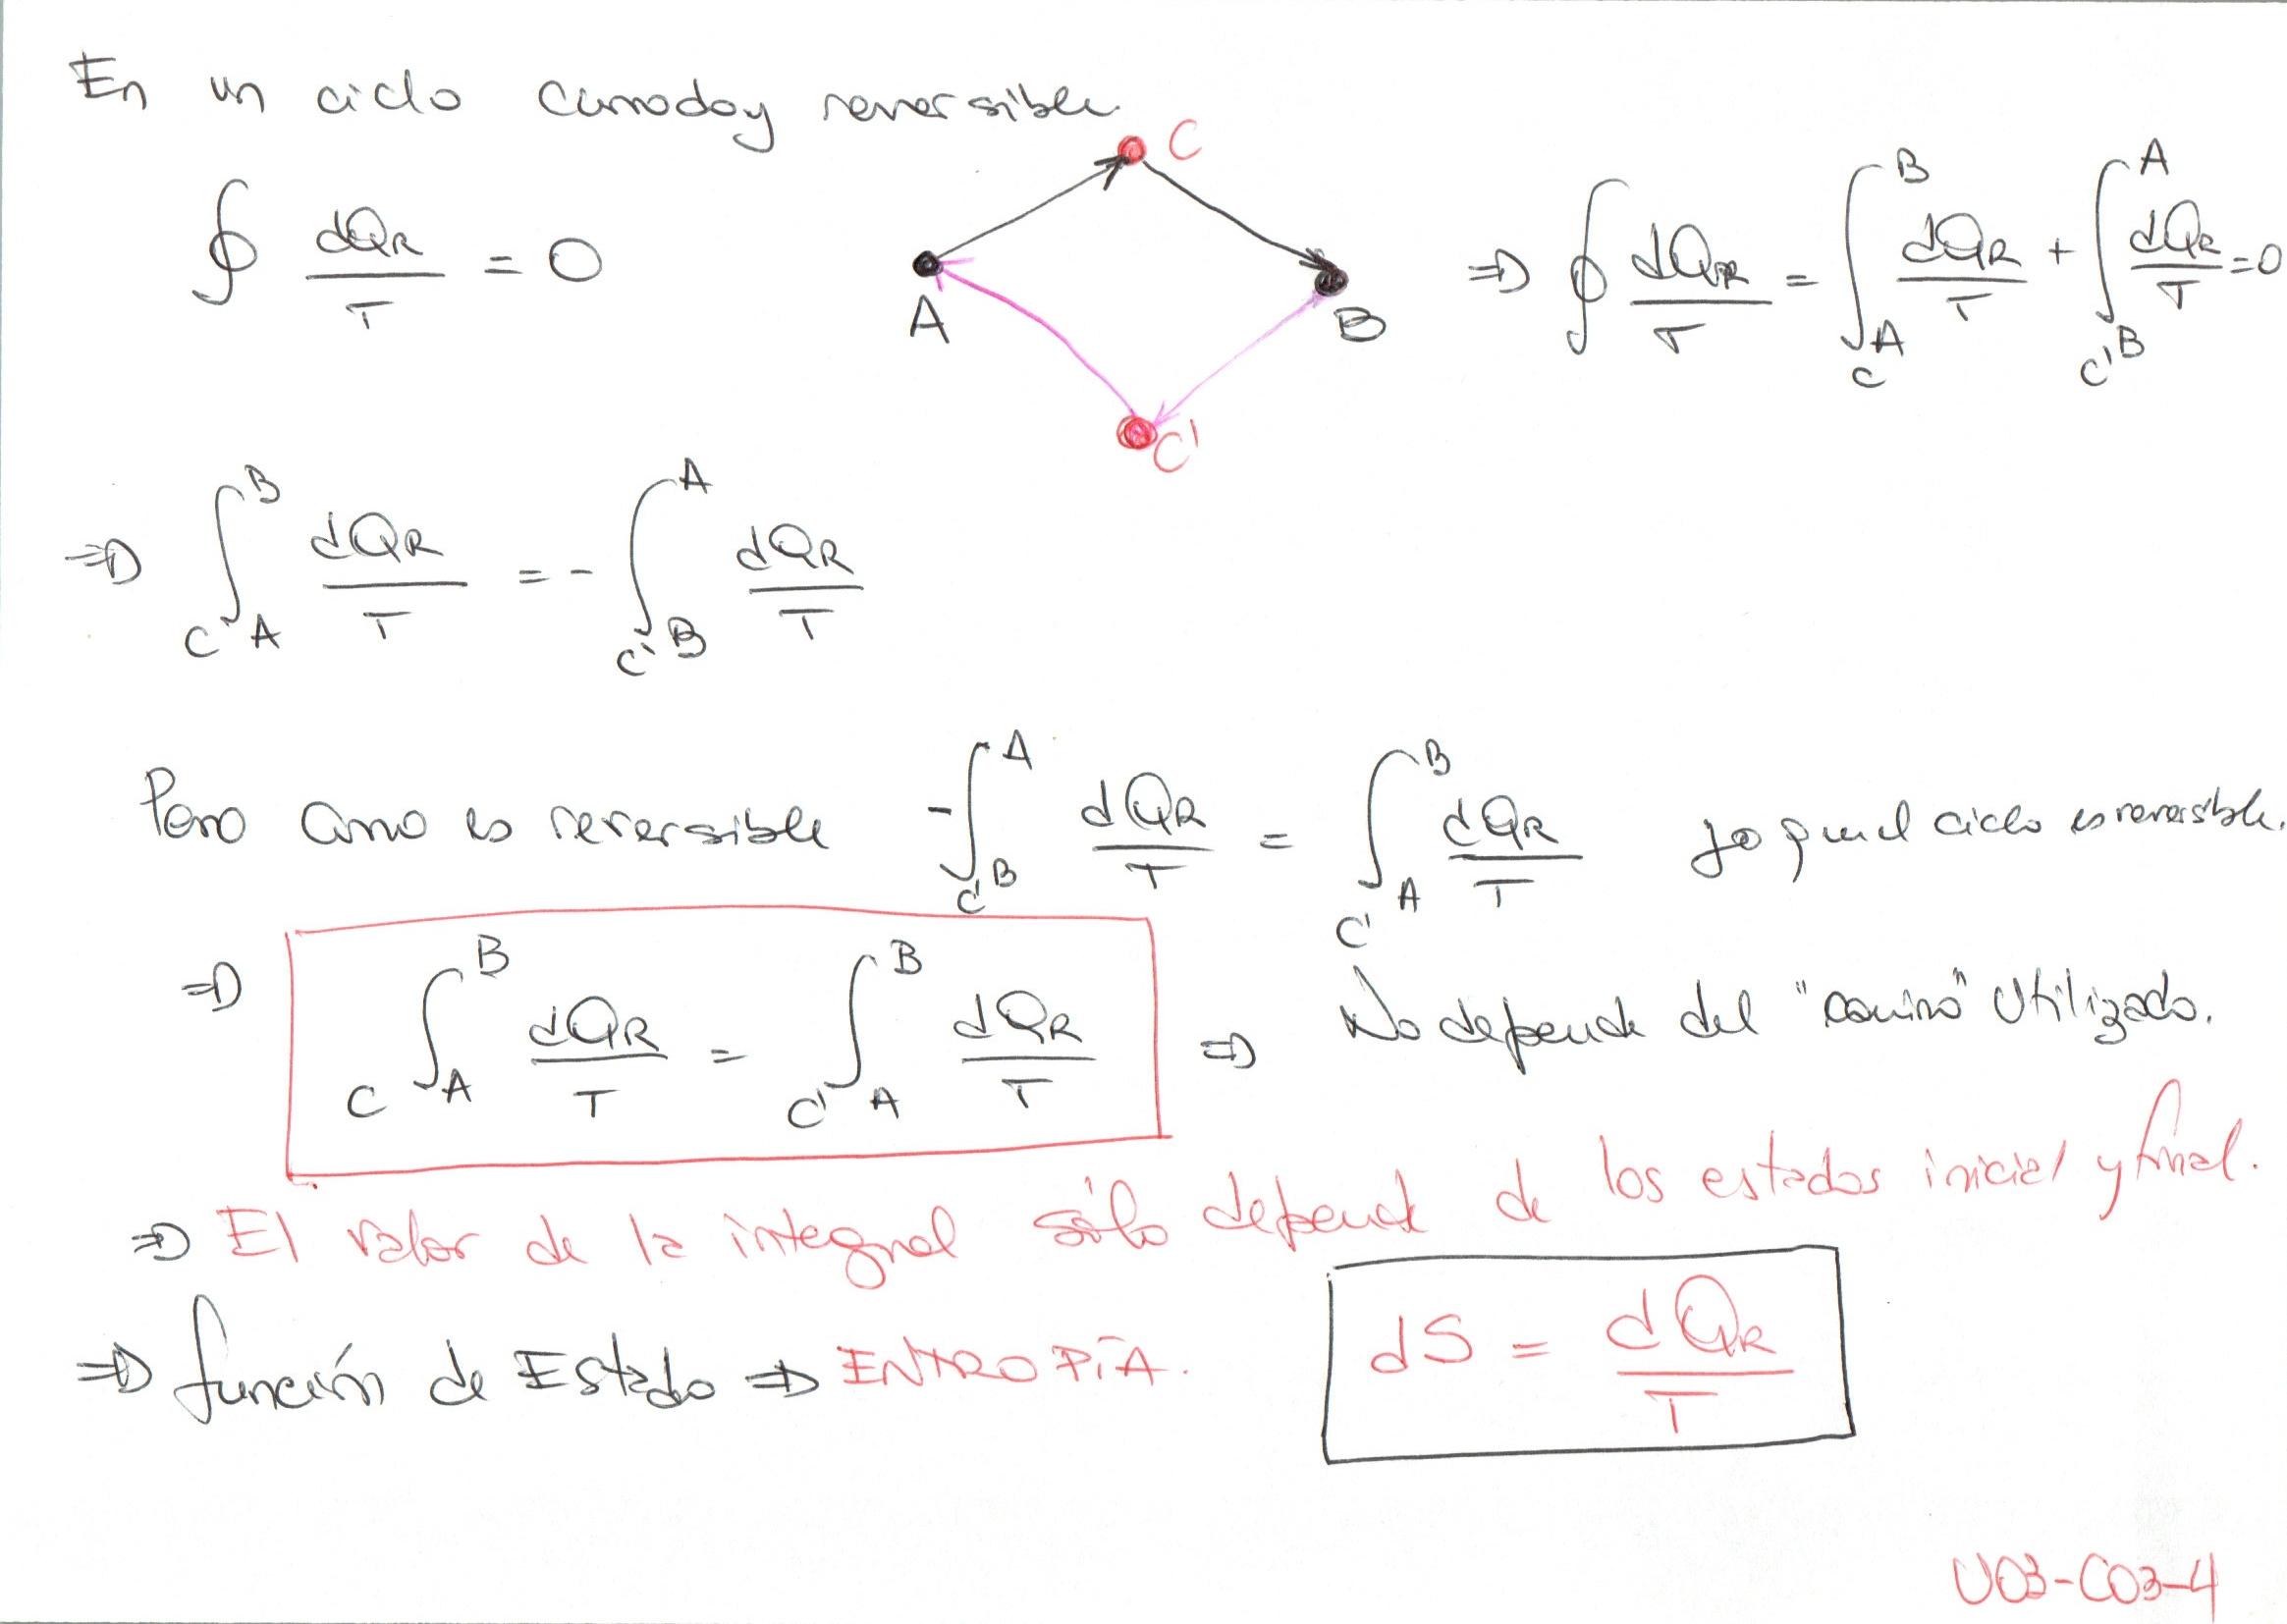 En un ciclo cerrado y reversible
∮ dQR/T = 0
C
A
B
C'
⇒ ∮ dQR/T = C∫_A^B dQR/T + C'∫_B^A dQR/T = 0
⇒ C∫_A^B dQR/T = - C'∫_B^A dQR/T
Pero como es reversible - C'∫_B^A dQR/T = C'∫_A^B dQR/T ya que el ciclo es reversible.
⇒ C∫_A^B dQR/T = C'∫_A^B dQR/T ⇒ No depende del "camino" utilizado.
⇒ El valor de la integral sólo depende de los estados inicial y final.
⇒ función de Estado ⇒ ENTROPÍA.
dS = dQR/T
U03-C03-4